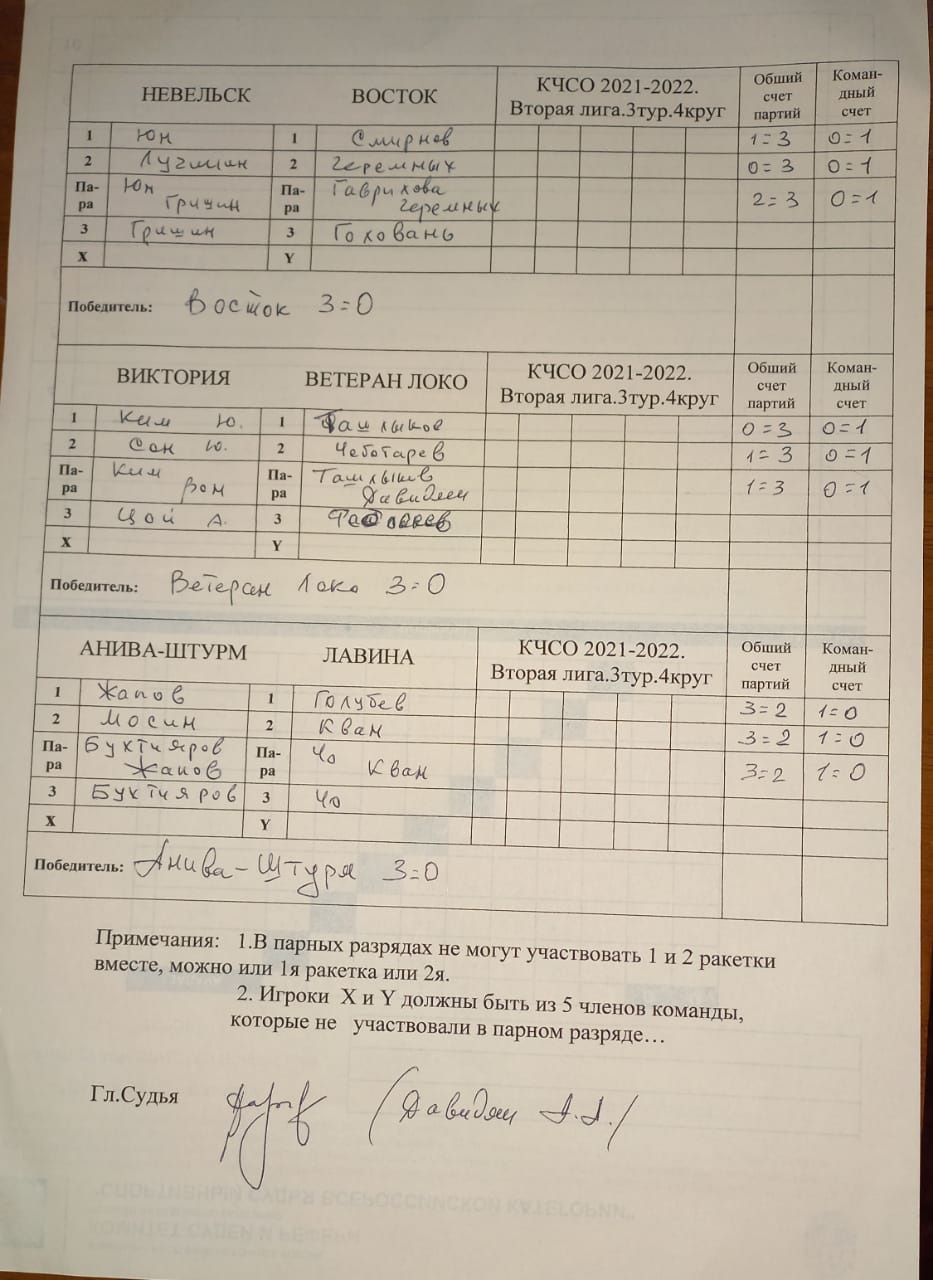 НЕВЕЛЬСК ВОСТОК КЧСО 2021-2022. Вторая лига.3тур.4круг Общий счет партий Коман-дный счет
1 Юн 1 Смирнов 1=3 0=1
2 Лугинин 2 Геремных 0=3 0=1
Па-ра Юн Гришин Па-ра Гаврихова Геремных 2=3 0=1
3 Гришин 3 Головань
X Y
Победитель: Восток 3=0
ВИКТОРИЯ ВЕТЕРАН ЛОКО КЧСО 2021-2022. Вторая лига.3тур.4круг Общий счет партий Коман-дный счет
1 Ким Ю. 1 Ташлыков 0=3 0=1
2 Сон Ю. 2 Чеботарев 1=3 0=1
Па-ра Ким Вон Па-ра Ташлыков Давидян 1=3 0=1
3 Цой А. 3
X Y
Победитель: Ветеран Локо 3=0
АНИВА-ШТУРМ ЛАВИНА КЧСО 2021-2022. Вторая лига.3тур.4круг Общий счет партий Коман-дный счет
1 Жапов 1 Голубев 3=2 1=0
2 Мосин 2 Кван 3=2 1=0
Па-ра Буктияров Жапов Па-ра Чо Кван 3=2 1=0
3 Буктияров 3 Чо
X Y
Победитель: Анива-Штурм 3=0
Примечания: 1.В парных разрядах не могут участвовать 1 и 2 ракетки
вместе, можно или 1я ракетка или 2я.
2. Игроки X и Y должны быть из 5 членов команды,
которые не участвовали в парном разряде…
Гл.Судья /Давидян А.А./